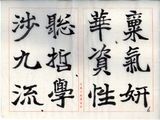 稟氣妍
華資性
聰哲學
涉九流